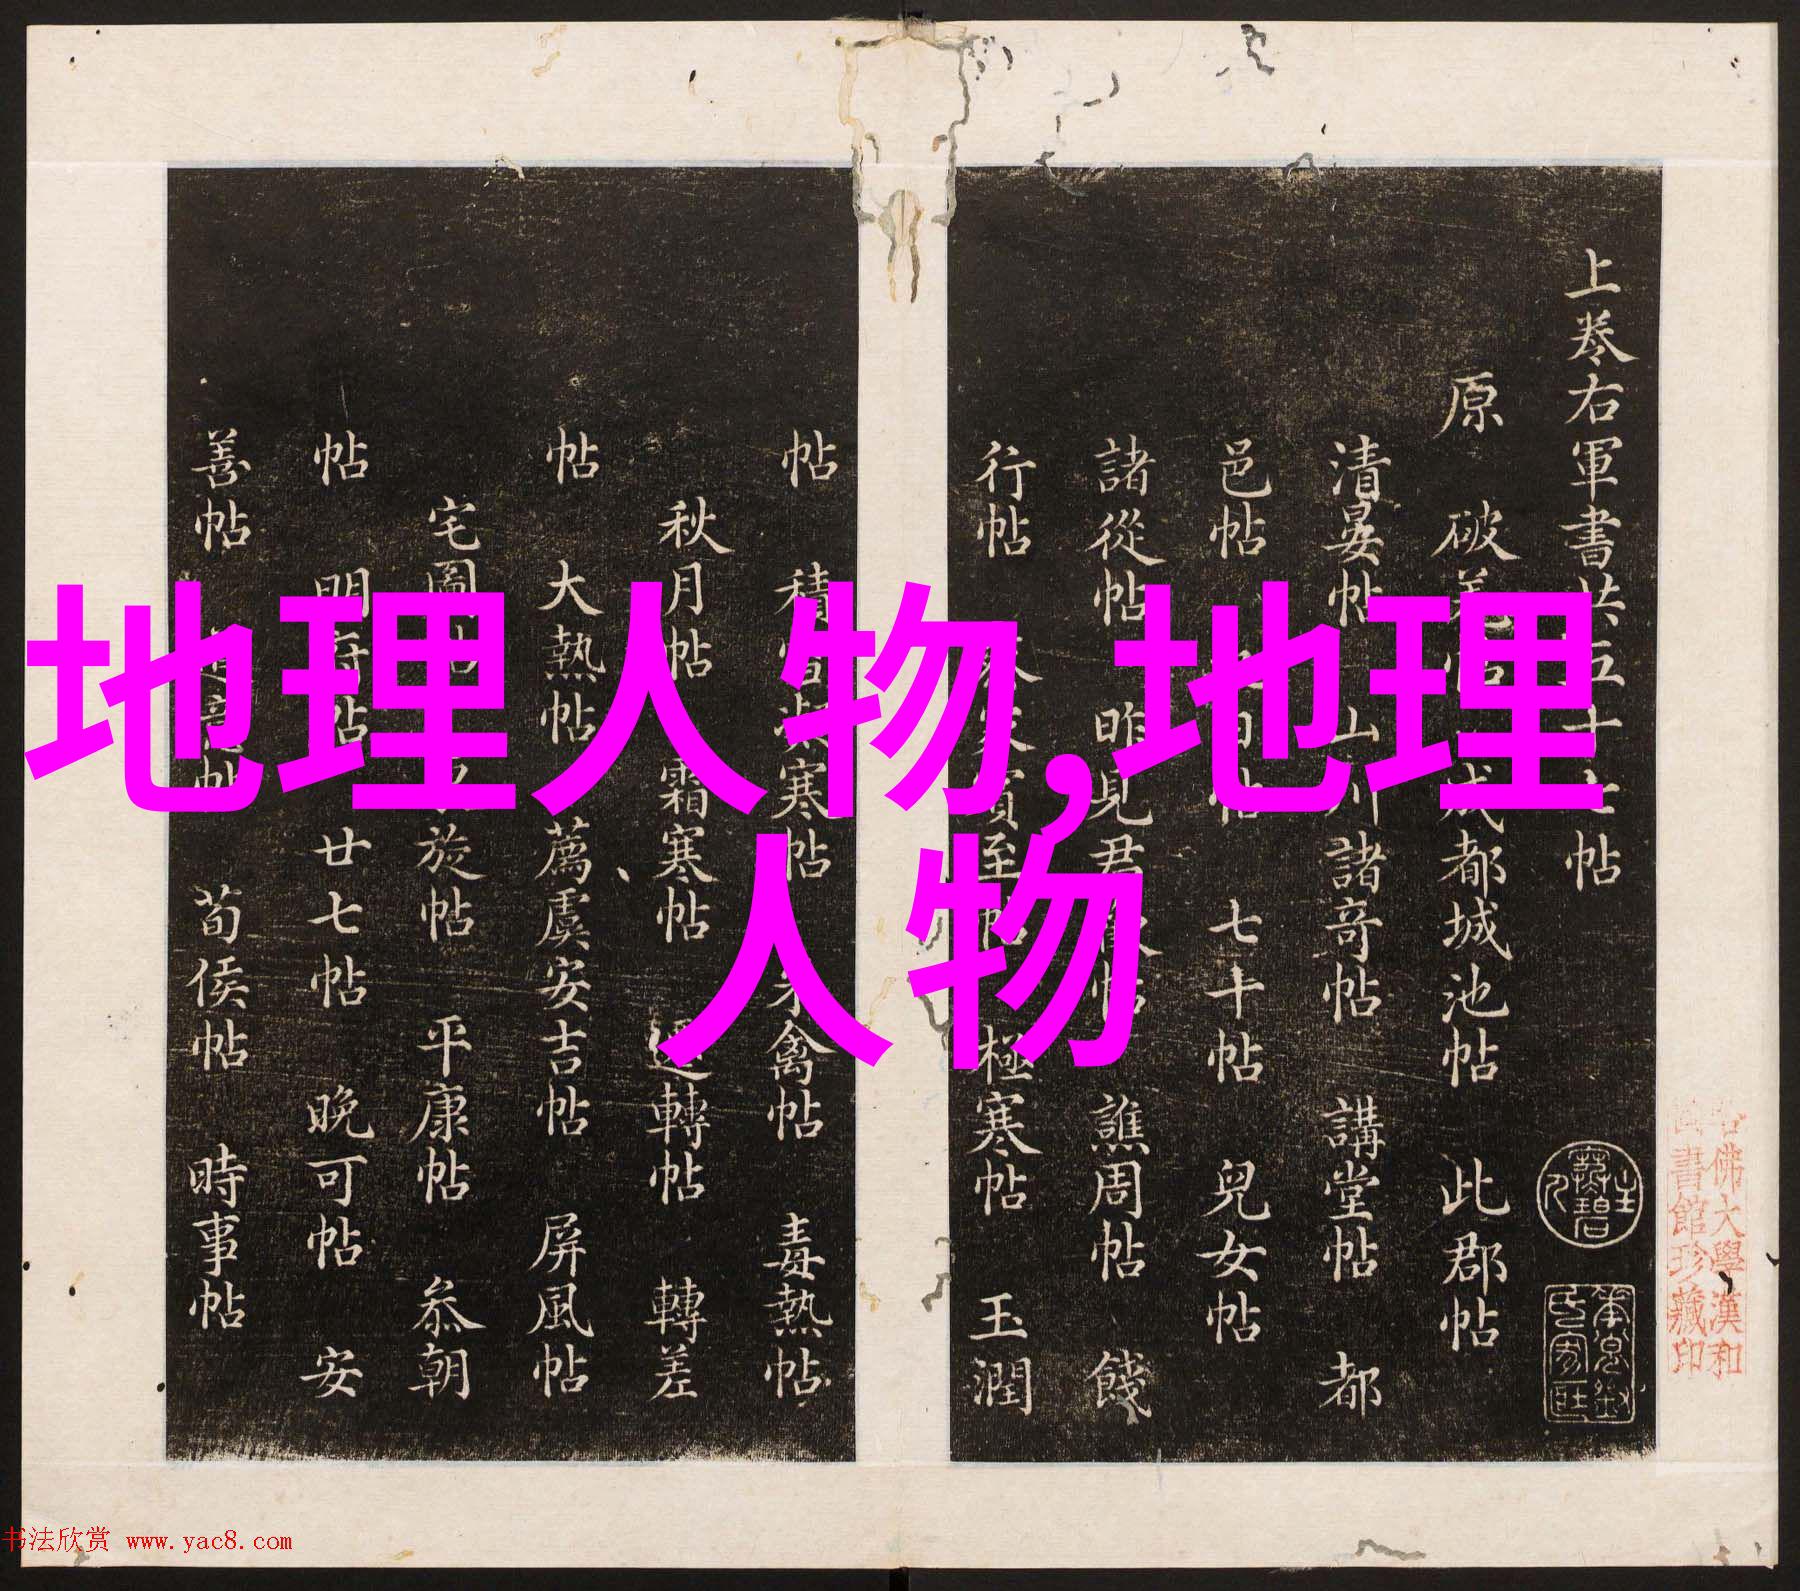 地理人物,地理
人物
上卷右軍書共五十七帖
原 破羌帖 成都城池帖 此郡帖
清晏帖 山川諸奇帖 講堂帖 都
邑帖 帖 七十帖 兒女帖
諸從帖 昨見君 帖 譙周帖 餞
行帖 來 至帖 極寒帖 玉潤
帖 積雪凝寒帖 禽帖 毒熱帖
秋月帖 霜寒帖 轉帖 轉差
帖 大熱帖 薦虞安吉帖 屏風帖
宅圖 旋帖 平康帖 叅朝
帖 明府帖 廿七帖 晚可帖 安
善帖 帖 荀侯帖 時事帖
佛大學漢和
書館珍藏印
书法欣赏 www.yac8.com